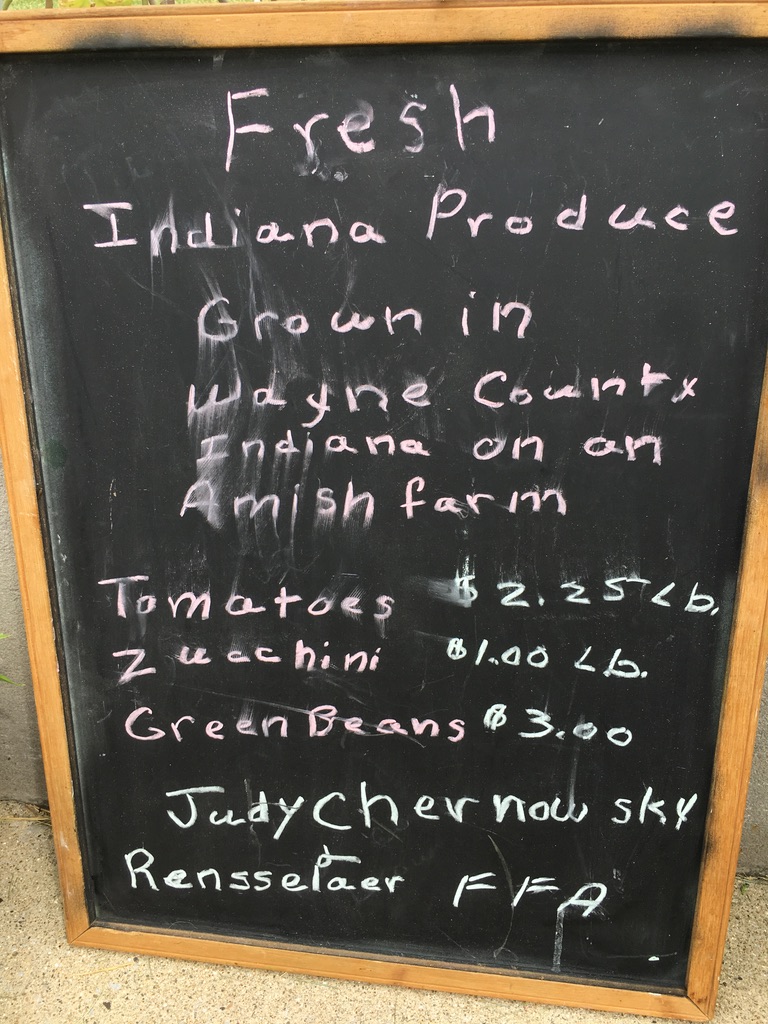 Fresh
Indiana Produce
Grown in
Wayne County
Indiana on an
Amish farm
Tomatoes $2.25 Lb.
Zucchini $1.00 Lb.
Green Beans $3.00
Judy Chernowsky
Rensselaer FFA